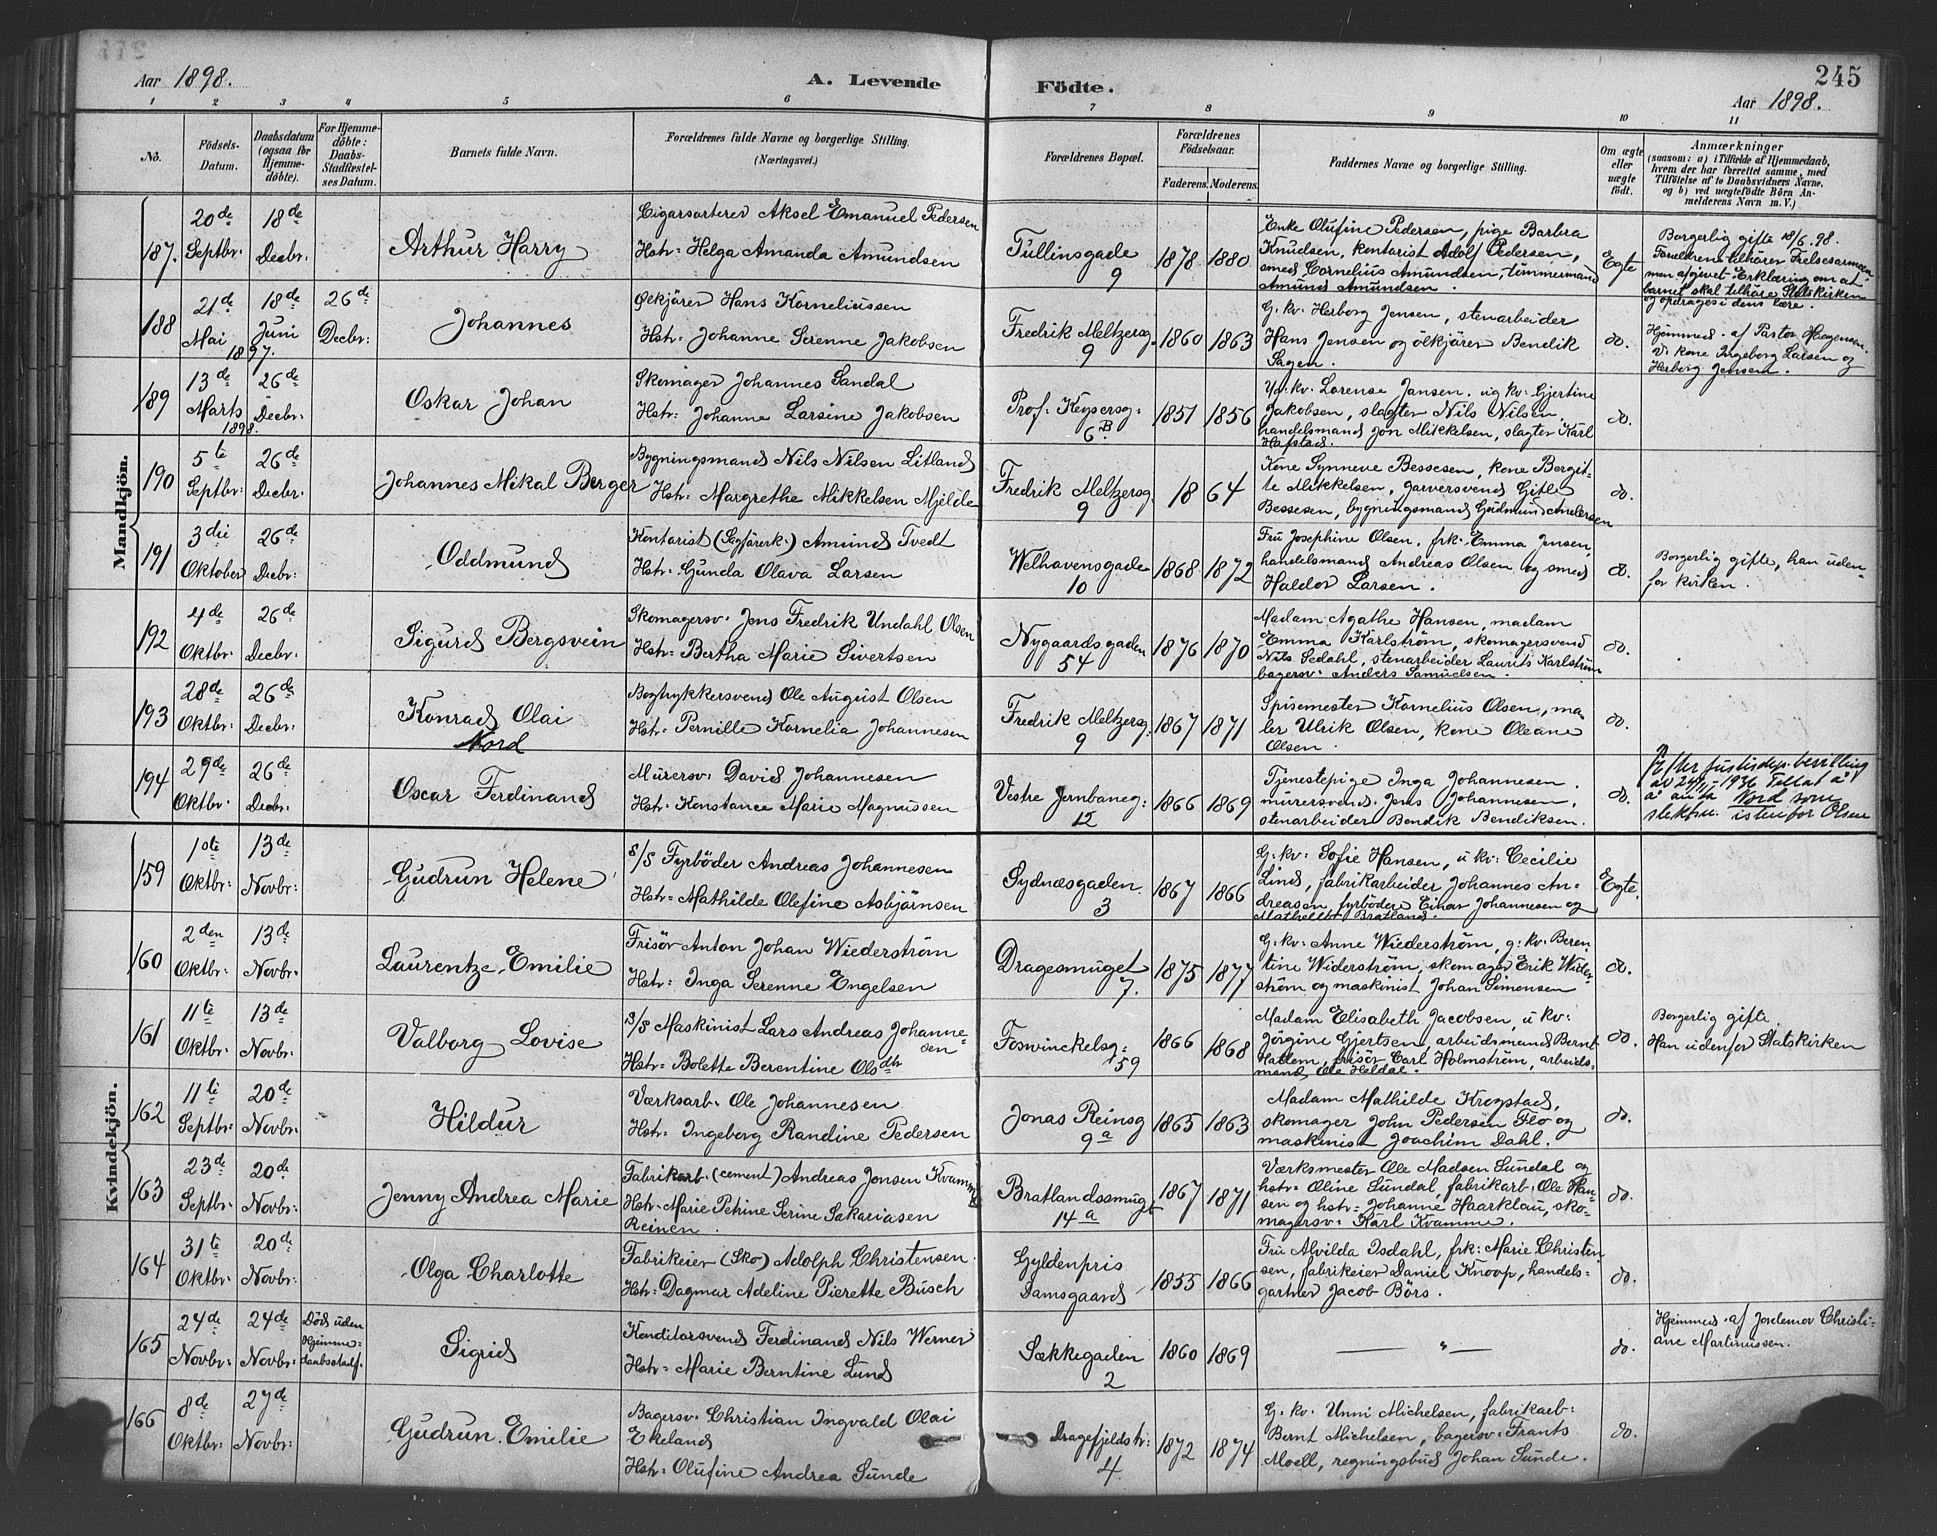 245
Aar 1898.
A. Levende Fødte.
Aar 1898.
1 2 3 4 5 6 7 8 9 10 11
No.
Födsels-Datum.
Daabsdatum (ogsaa for Hjemmedöbte).
For Hjemmedöbte: Daabs-Stadfæstelses Datum.
Barnets fulde Navn.
Forældrenes fulde Navne og borgerlige Stilling. (Næringsvei.)
Forældrenes Bopæl.
Forældrenes Födselsaar.
Faderens. Moderens.
Faddernes Navne og borgerlige Stilling.
Om ægte eller uægte födt.
Anmærkninger
(saasom: a) i Tilfælde af Hjemmedaab, hvem der har forrettet samme, med Tilföielse af to Daabsvidners Navne, og b) ved uegtefödte Börn Anmelderens Navn m. V.)
Mandkjön.
187. 20de Septbr: 18de Decbr:
Arthur Harry
Cigarsorterer Aksel Emanuel Pedersen
Hstr: Helga Amanda Amundsen
Tullinsgade 9
1878 1880
Enke Olufine Pedersen, pige Barbra
Knudsen, kontorist Adolf Pedersen,
smed Cornelius Amundsen, tømmermand
Amund Amundsen.
Egte
Borgerlig gifte 18/6. 98.
Forældrene tilhører Frelsesarmeen
men afgivet Erklæring om at
barnet skal tilhøre Statskirken
og opdrages i dens lære.
188 21de Mai 1897. 18de Juni 26de Decbr:
Johannes
Ølkjører Hans Korneliussen
Hstr: Johanne Serenne Jakobsen
Fredrik Meltzersg. 9
1860 1863
G. kv. Herborg Jensen, stenarbeider
Hans Jensen og ølkjører Bendik
Sagen.
do.
Hjemmed. af Pastor Haagensen.
V: kone Ingeborg Larsen og
Herborg Jensen.
189 13de Marts 1898. 26de Decbr:
Oskar Johan
Skomager Johannes Sandal
Hstr: Johanne Larsine Jakobsen
Prof: Keysersg: 6B
1851 1856
G: kv. Lorense Jansen. ug kv: Gjertine
Jakobsen, slagter Nils Nilsen
handelsmand Jon Mikkelsen, slagter Karl
Hafstad.
do.
190 5te Septbr: 26de Decbr:
Johannes Mikal Berger
Bygningsmand Nils Nilsen Litland
Hstr: Margrethe Mikkelsen Mjelde
Fredrik Meltzersg. 9
18 64
Kone Synneve Bessesen, kone Bergit-
te Mikkelsen, garversvend Gitle
Bessesen, bygningsmand Gudmund Andersen
do.
191 3die Oktober 26de Decbr:
Oddmund
Kontorist (Sagførerk.) Amund Tvedt
Hstr: Gunda Olava Larsen
Welhavensgade 10
1868 1872
Fru Josephine Olsen. frk: Emma Jensen,
handelsmand Andreas Olsen og smed
Haldor Larsen.
do.
Borgerlig gifte, han uden-
for kirken.
192 4de Oktbr: 26de Decbr:
Sigurd Bergsvein
Skomagersv. Jens Fredrik Undahl Olsen
Hstr: Bertha Marie Sivertsen
Nygaardsgaden 54
1876 1870
Madam Agathe Hansen, madam
Emma Karlstrøm, skomagersvend
Nils Sedahl, stenarbeider Laurits Karlstrøm
bagersv: Anders Samuelsen.
do.
193 28de Oktbr: 26de Decbr:
Konrad Olai
Nord
Bogtrykkersvend Ole August Olsen
Hstr: Pernille Kornelia Johannesen
Fredrik Meltzersg. 9
1867 1871
Spisemester Kornelius Olsen, ma-
ler Ulrik Olsen, kone Oleane
Olsen.
do.
194 29de Oktbr. 26de Decbr:
Oscar Ferdinand
Murersv: David Johannesen
Hstr: Konstance Marie Magnussen
Vestre Jernbaneg: 12
1866 1869
Tjenestepige Inga Johannesen.
murersvend Jens Johannesen,
stenarbeider Bendik Bendiksen.
do.
Efter justisdep. bevilling
av 1936 Tillat å
å anta Nord som
slektsn. istenfor Olsen
Kvindekjön.
159 1ste Oktbr: 13de Novbr:
Gudrun Helene
S/S Fyrbøder Andreas Johannesen
Hstr: Mathilde Olefine Asbjørnsen
Sydnæsgaden. 3
1867 1866
G. kv: Sofie Hansen, u kv: Cecilie
Lind, fabrikarbeider Johannes An-
dreasen, fyrbøder Einar Johannesen og
Bratland.
Egte.
160 2den Oktbr: 13de Novbr:
Laurentze Emilie
Frisör Anton Johan Wiederstrøm
Hstr: Inga Serenne Engelsen
Dragesmuget 7.
1875 1877
G. kv: Anne Wiederstrøm, g: kv: Beren-
tine Widerstrøm, skomager Erik Wider-
strøm og maskinist Johan Simonsen
do.
161 11te Oktbr: 13de Novbr:
Valborg Lovise
S/S Maskinist Lars Andreas Johanne-
sen
Hstr: Bolette Berentine Olsdtr
Foswinckelsg: 59
1866 1868
Madam Elisabeth Jacobsen, u kv:
Jørgine Gjertsen, arbeidsmand Bernt
Hatlem, frisör Carl Holmstrøm, arbeids-
mand Ole Heldal.
do.
Borgerlig gifte
Han udenfor Statskirken
162 11te Septbr: 20de Novbr:
Hildur
Værksarb. Ole Johannesen
Hstr: Ingeborg Randine Pedersen
Jonas Reinsg 9a
1865 1863
Madam Mathilde Krogstad,
skomager John Pedersen Flo og
maskinist Joachim Dahl.
do.
163 23de Septbr: 20de Novbr:
Jenny Andrea Marie
Fabrikarb. (cement) Andreas Jonsen Kvamme
Hstr: Marie Petrine Serine Sakariasen
Reinen.
Bratlandssmuget 14a
1867 1871
Værksmester Ole Madsen Sundal og
hstr: Oline Sundal, fabrikarb. Ole Han-
sen og hstr: Johanne Haarklau, sko-
magersv: Karl Kvamme.
do.
164 31te Oktbr: 20de Novbr:
Olga Charlotte
Fabrikeier (Sko) Adolph Christensen.
Hstr: Dagmar Adeline Pierette Busch
Gyldenpris Damsgaard
1855 1866
Fru Alvilda Isdahl, frk: Marie Christen
sen, fabrikeier Daniel Knoop, handels-
gartner Jacob Börs.
do.
165 24de Novbr: 24de Novbr: Död uden Hjemme-daabsstadf.
Sigrid
Konditorsvend Ferdinand Nils Werner
Hstr: Marie Berntine Lund
Sækkegaden 2
1860 1869
— " —
do.
Hjemmed. af Jordemor Christi-
ane Martinussen.
166 8de Oktbr: 27de Novbr:
Gudrun Emilie
Bagersv: Christian Ingvald Olai
Ekeland
Hstr: Olufine Andrea Sunde
Dragefjeldstr: 4.
1872 1874
G. kv: Unni Michelsen, fabrikarb:
Bernt Michelsen, bagersv: Frants
Moell, regningsbud Johan Sunde.
do.